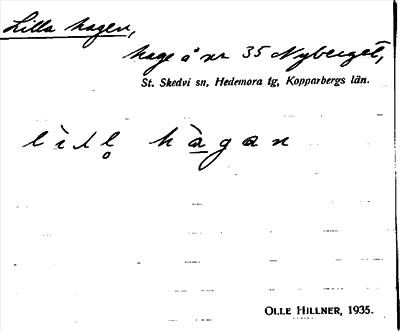 Lilla hagen,
hage å nr 35 Nyberget,
St. Skedvi sn, Hedemora tg, Kopparbergs län.
lìll̥ hà̲gan
OLLE HILLNER, 1935.